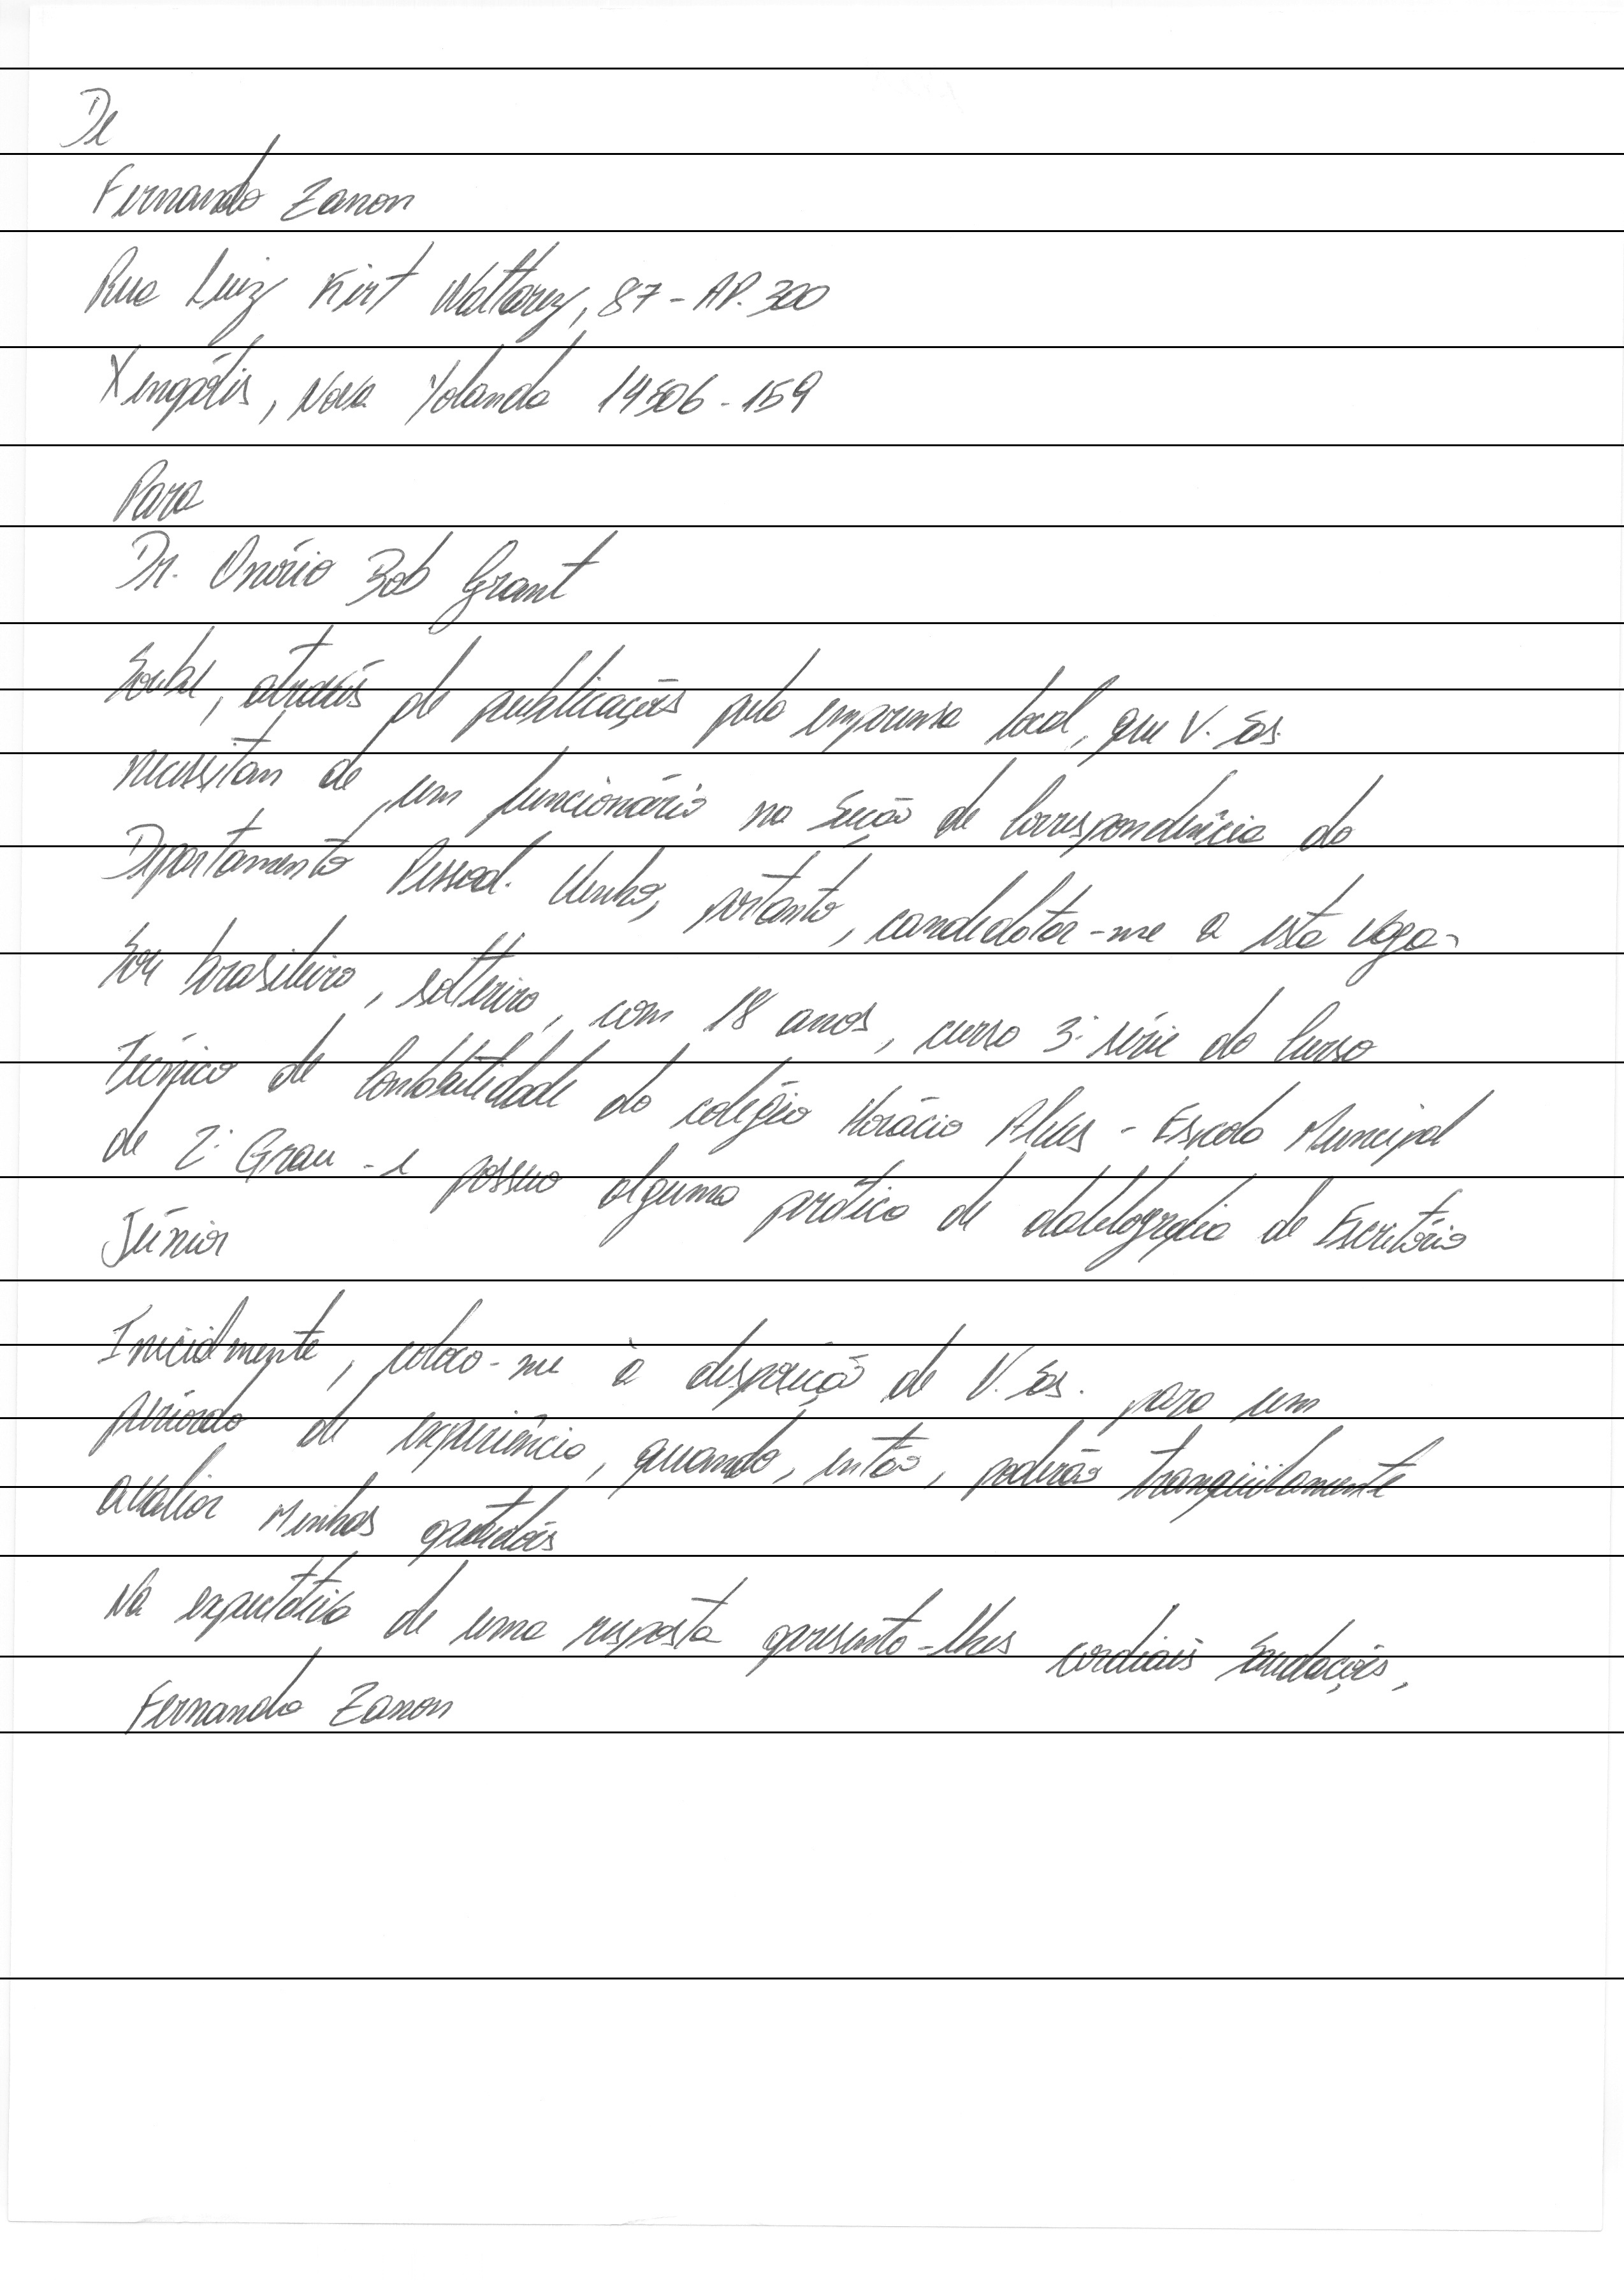 De
Fernando Zanon
Rua Luiz Kirt Wattarez, 87 - AP. 300
Xengólis, Nova Yolanda 14506-159
Para
Dr. Onório Bob Grant
Soube, através de publicações pela imprensa local, que V. Sas.
necessitan de um funcionário na Seção de Correspondência do
Departamento Pessoal. Venho, portanto, candidatar-me a esta vaga.
Sou brasileiro, solteiro, com 18 anos, curso 3ª série do Curso
Técnico de Contabilidade do colégio Horácio Alves - Escola Muncipal
de 2º Grau - e possuo alguma prática de de Escritório
Júnior
Inicialmente, coloco-me à disposição de V. Sas. para um
período de experiência, quando, então, poderão tranqüilamente
avaliar Minhas aptidões
Na expectativa de uma resposta apresento-lhes cordiais Saudações,
Fernando Zanon